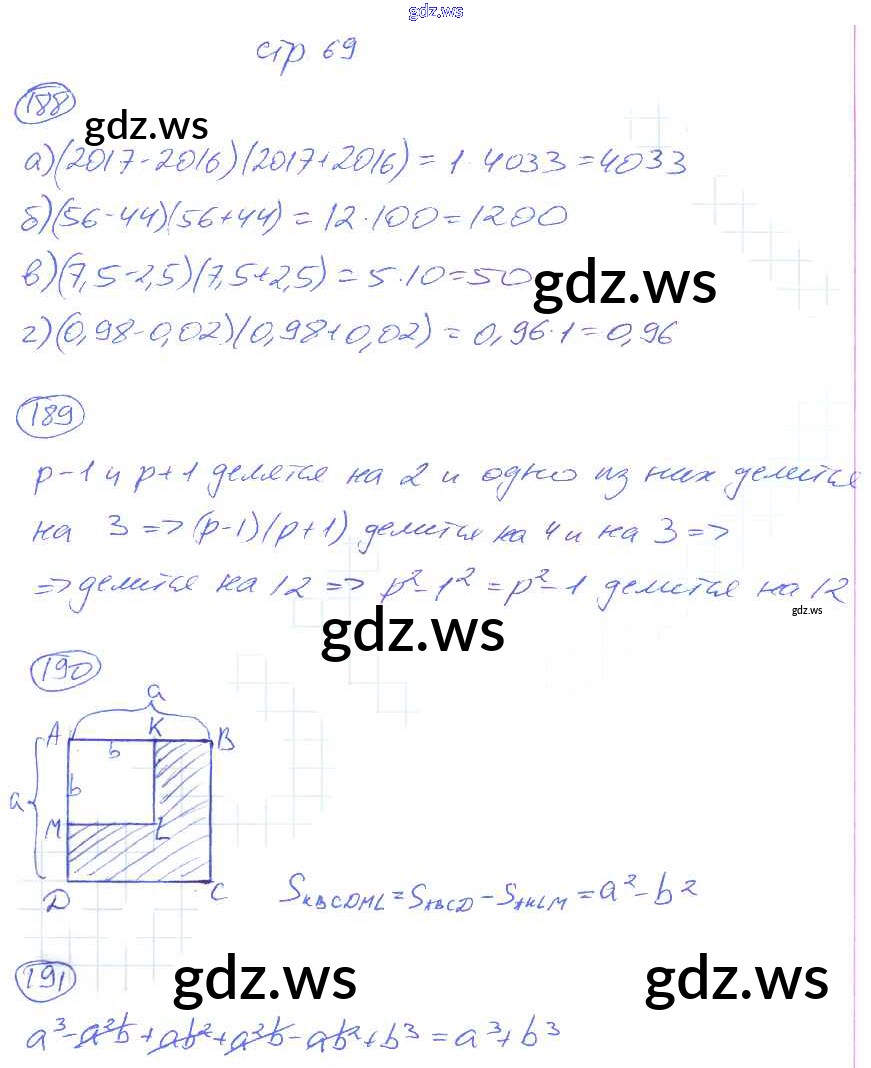 gdz.ws
стр 69
188
gdz.ws
а) (2017-2016)(2017+2016) = 1·4033=4033
б) (56-44)(56+44) = 12·100=1200
в) (7,5-2,5)(7,5+2,5) = 5·10=50
gdz.ws
г) (0,98-0,02)(0,98+0,02) = 0,96·1=0,96
189
p-1 и p+1 делятся на 2 и одно из них делится
на 3 => (p-1)(p+1) делится на 4 и на 3 =>
=> делится на 12 => p²-1² = p²-1 делится на 12
gdz.ws
gdz.ws
190
a
A K B
b
b
a
M L
D C
S_KBCDML = S_ABCD - S_AKLM = a² - b²
191
gdz.ws
gdz.ws
a³-a²b+ab²+a²b-ab²+b³ = a³+b³